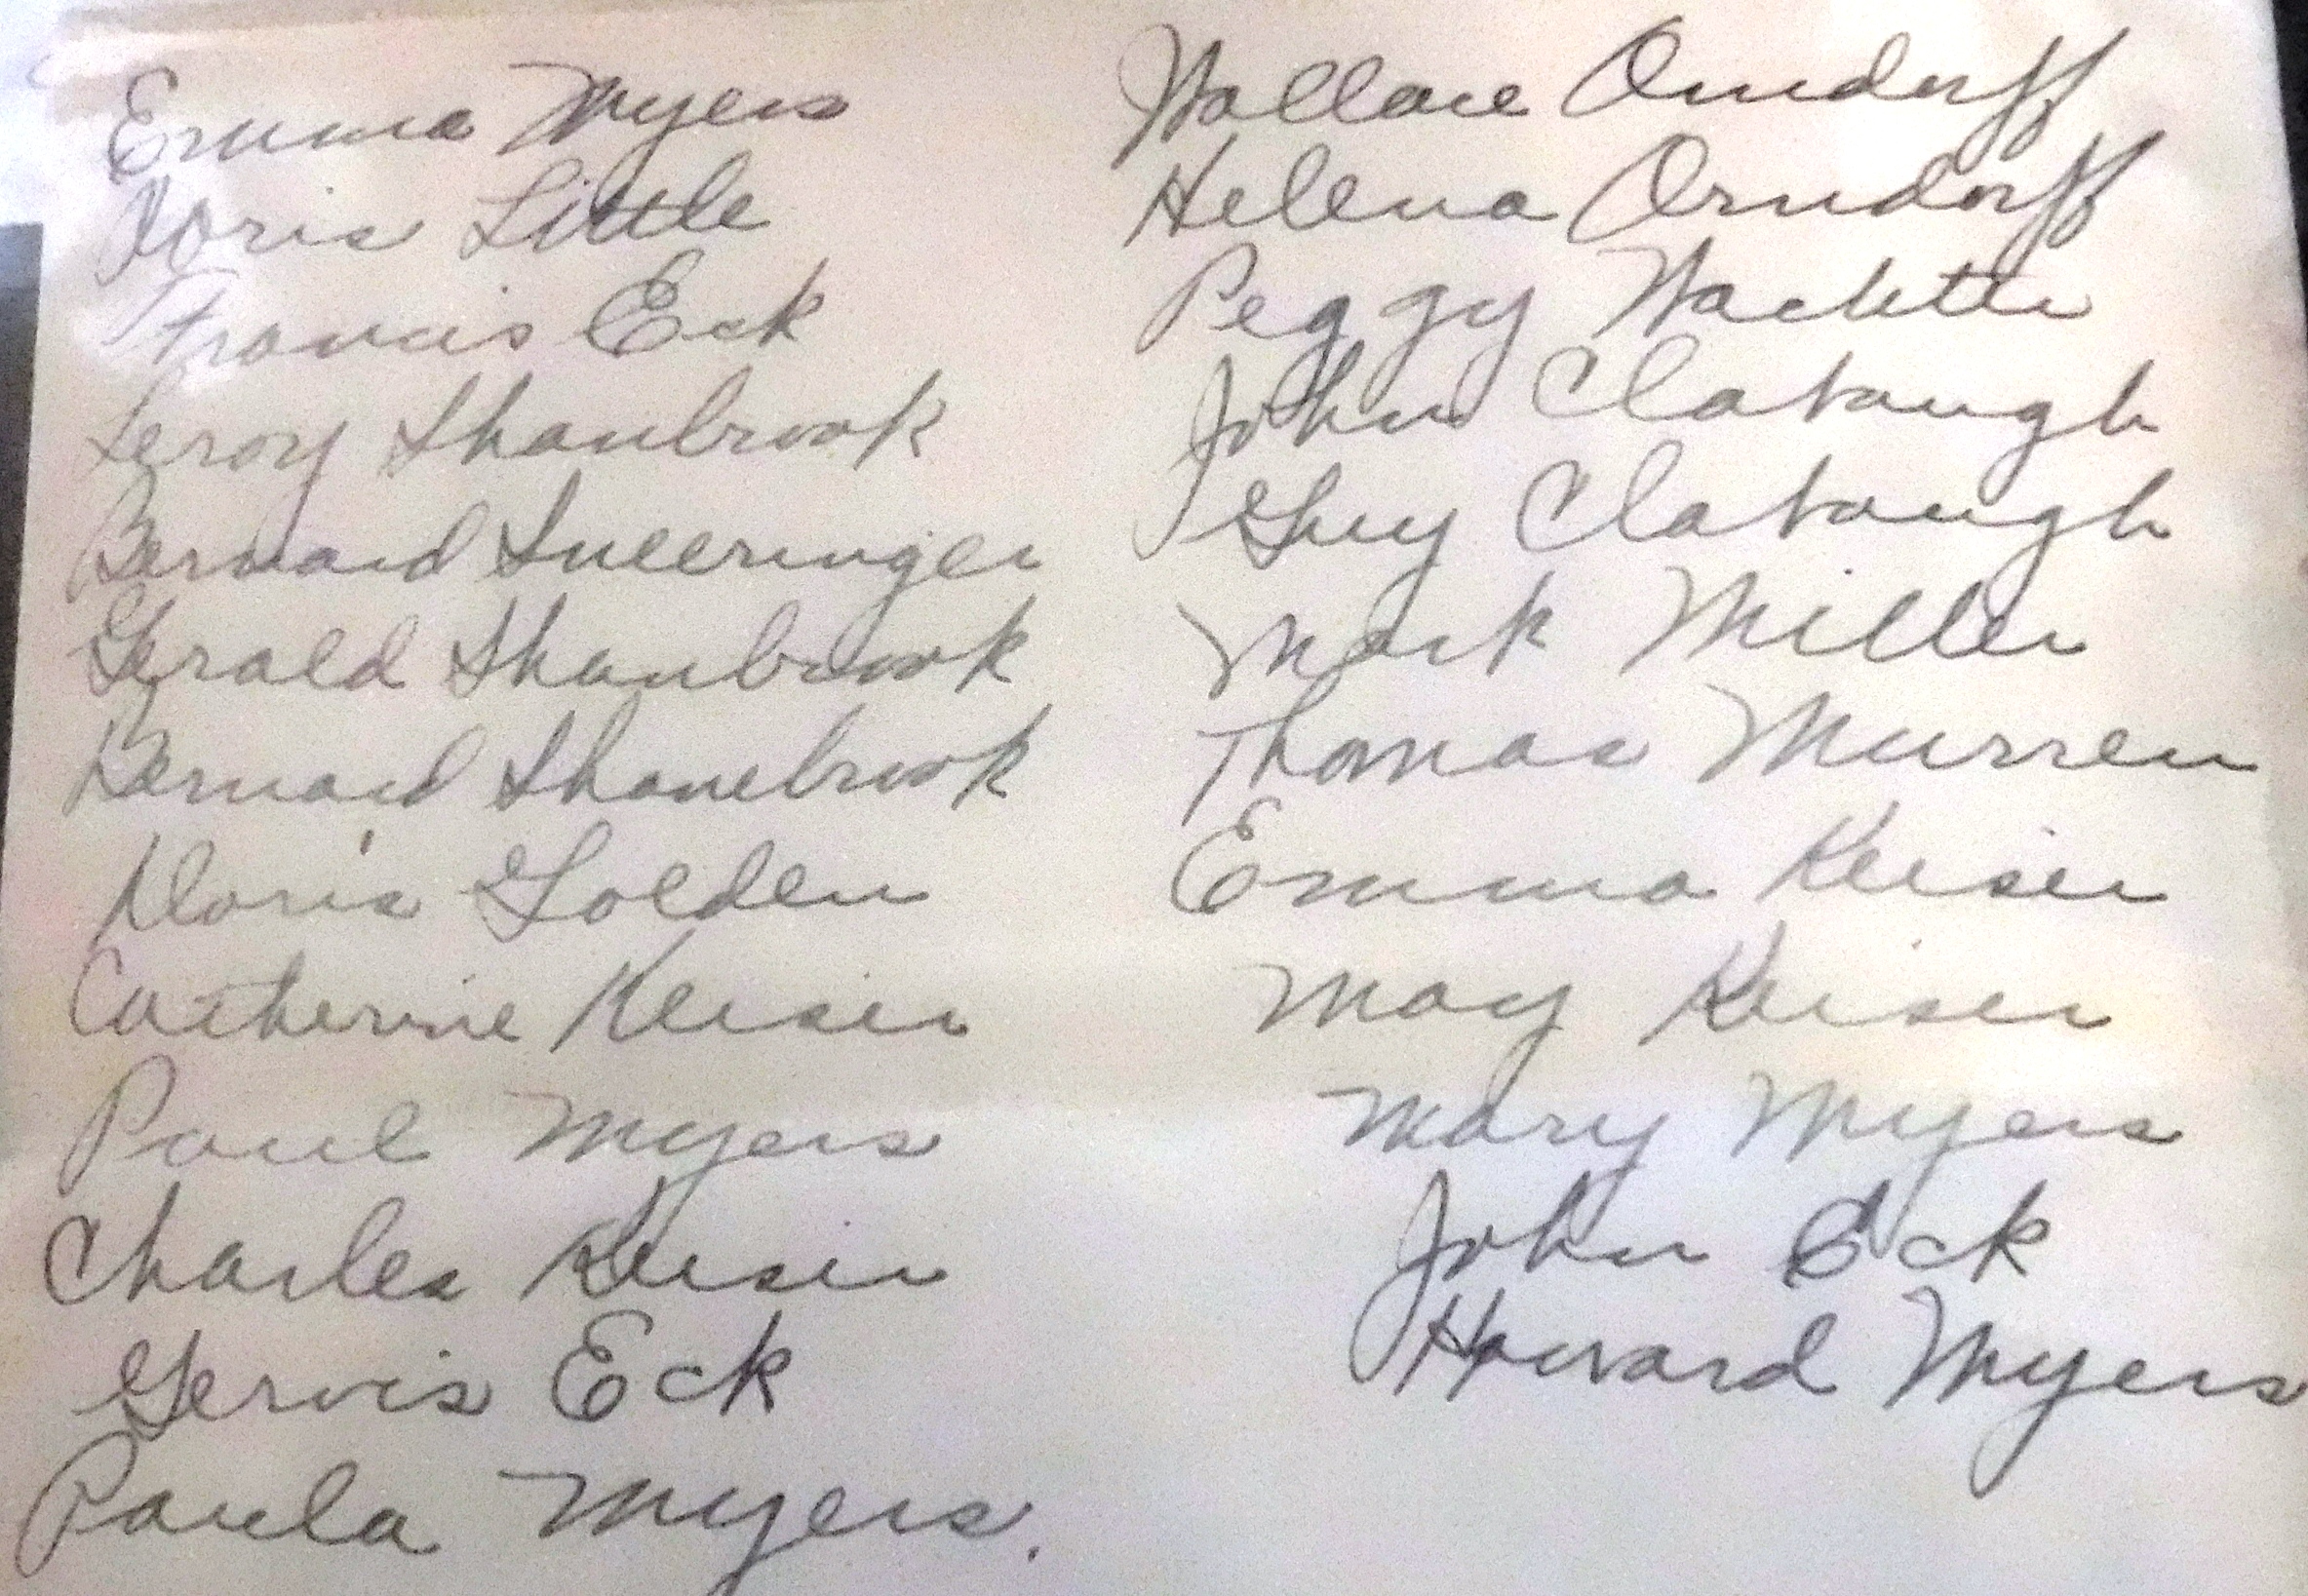 Emma Myers
Doris Little
Francis Eck
Leroy Shanbrook
Bernard Sneeringer
Gerald Shanbrook
Bernard Shanebrook
Doris Golden
Catherine Keiser
Paul Myers
Charles Keiser
Gervis Eck
Paula Myers.
Wallace Orndorff
Helena Orndorff
Peggy
John Clabaugh
Guy Clabaugh
Mark Miller
Thomas Murren
Emma Keiser
May Keiser
Mary Myers
John Eck
Howard Myers